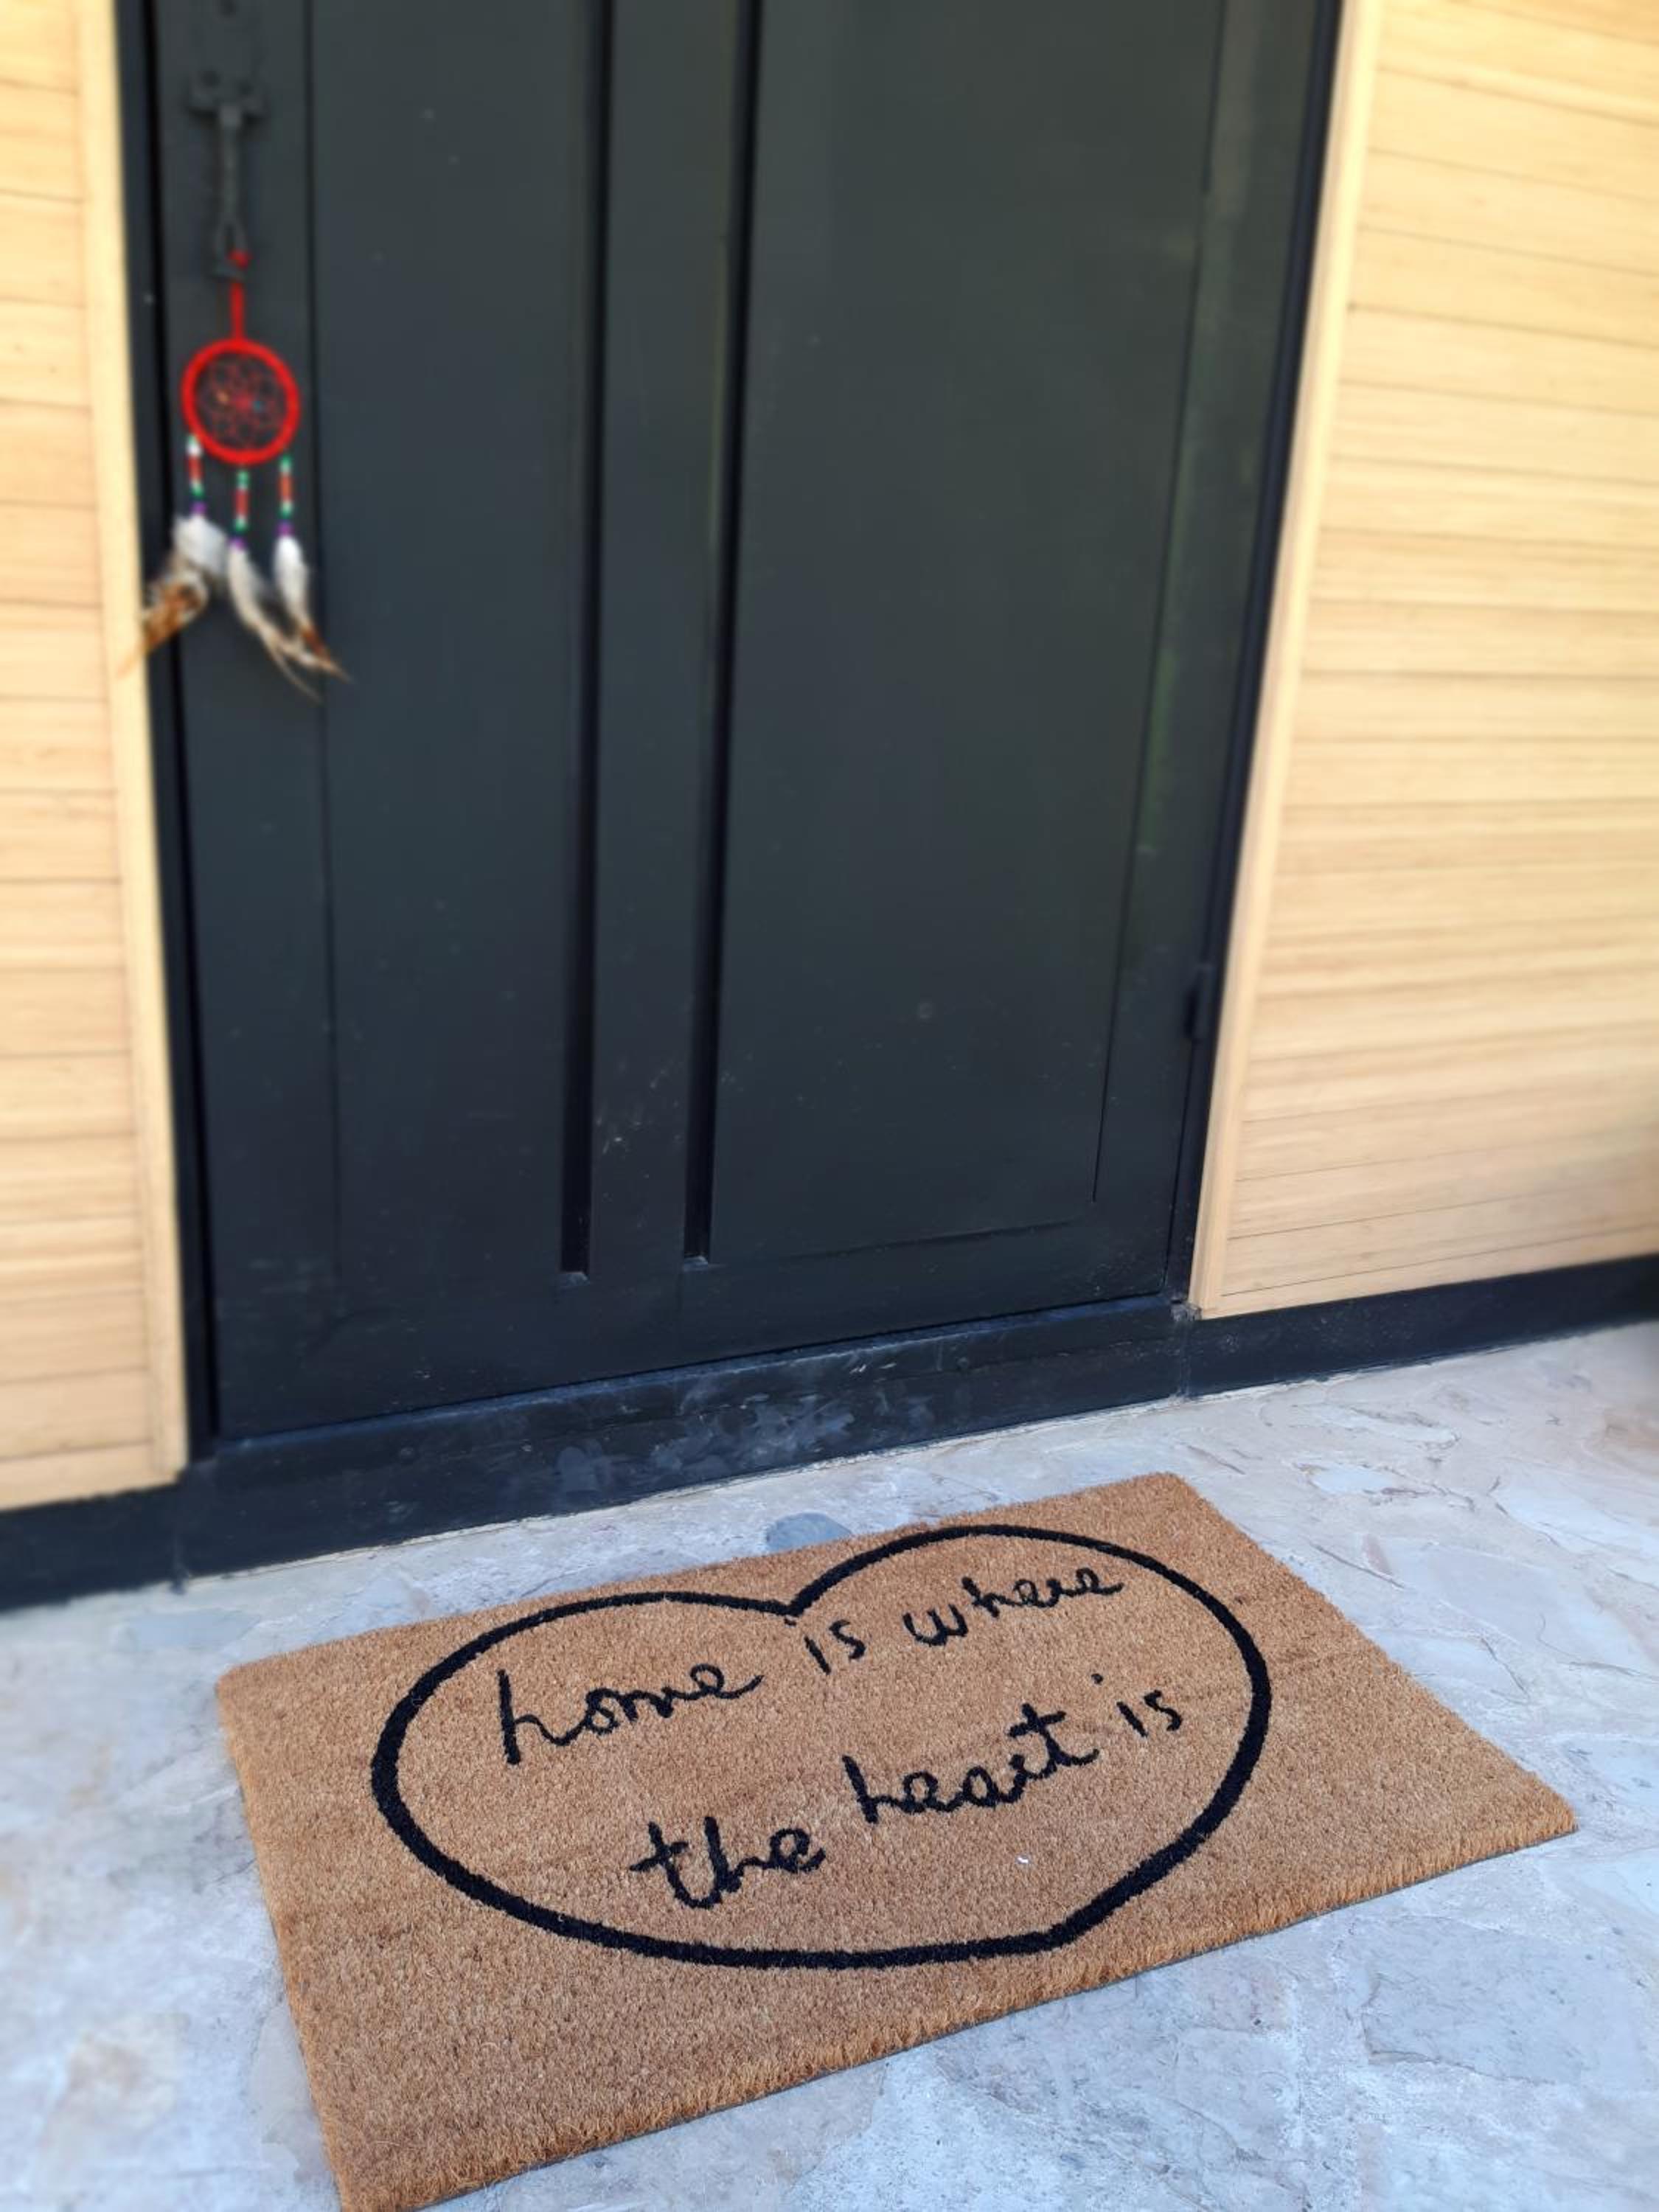 home is where
the heart is